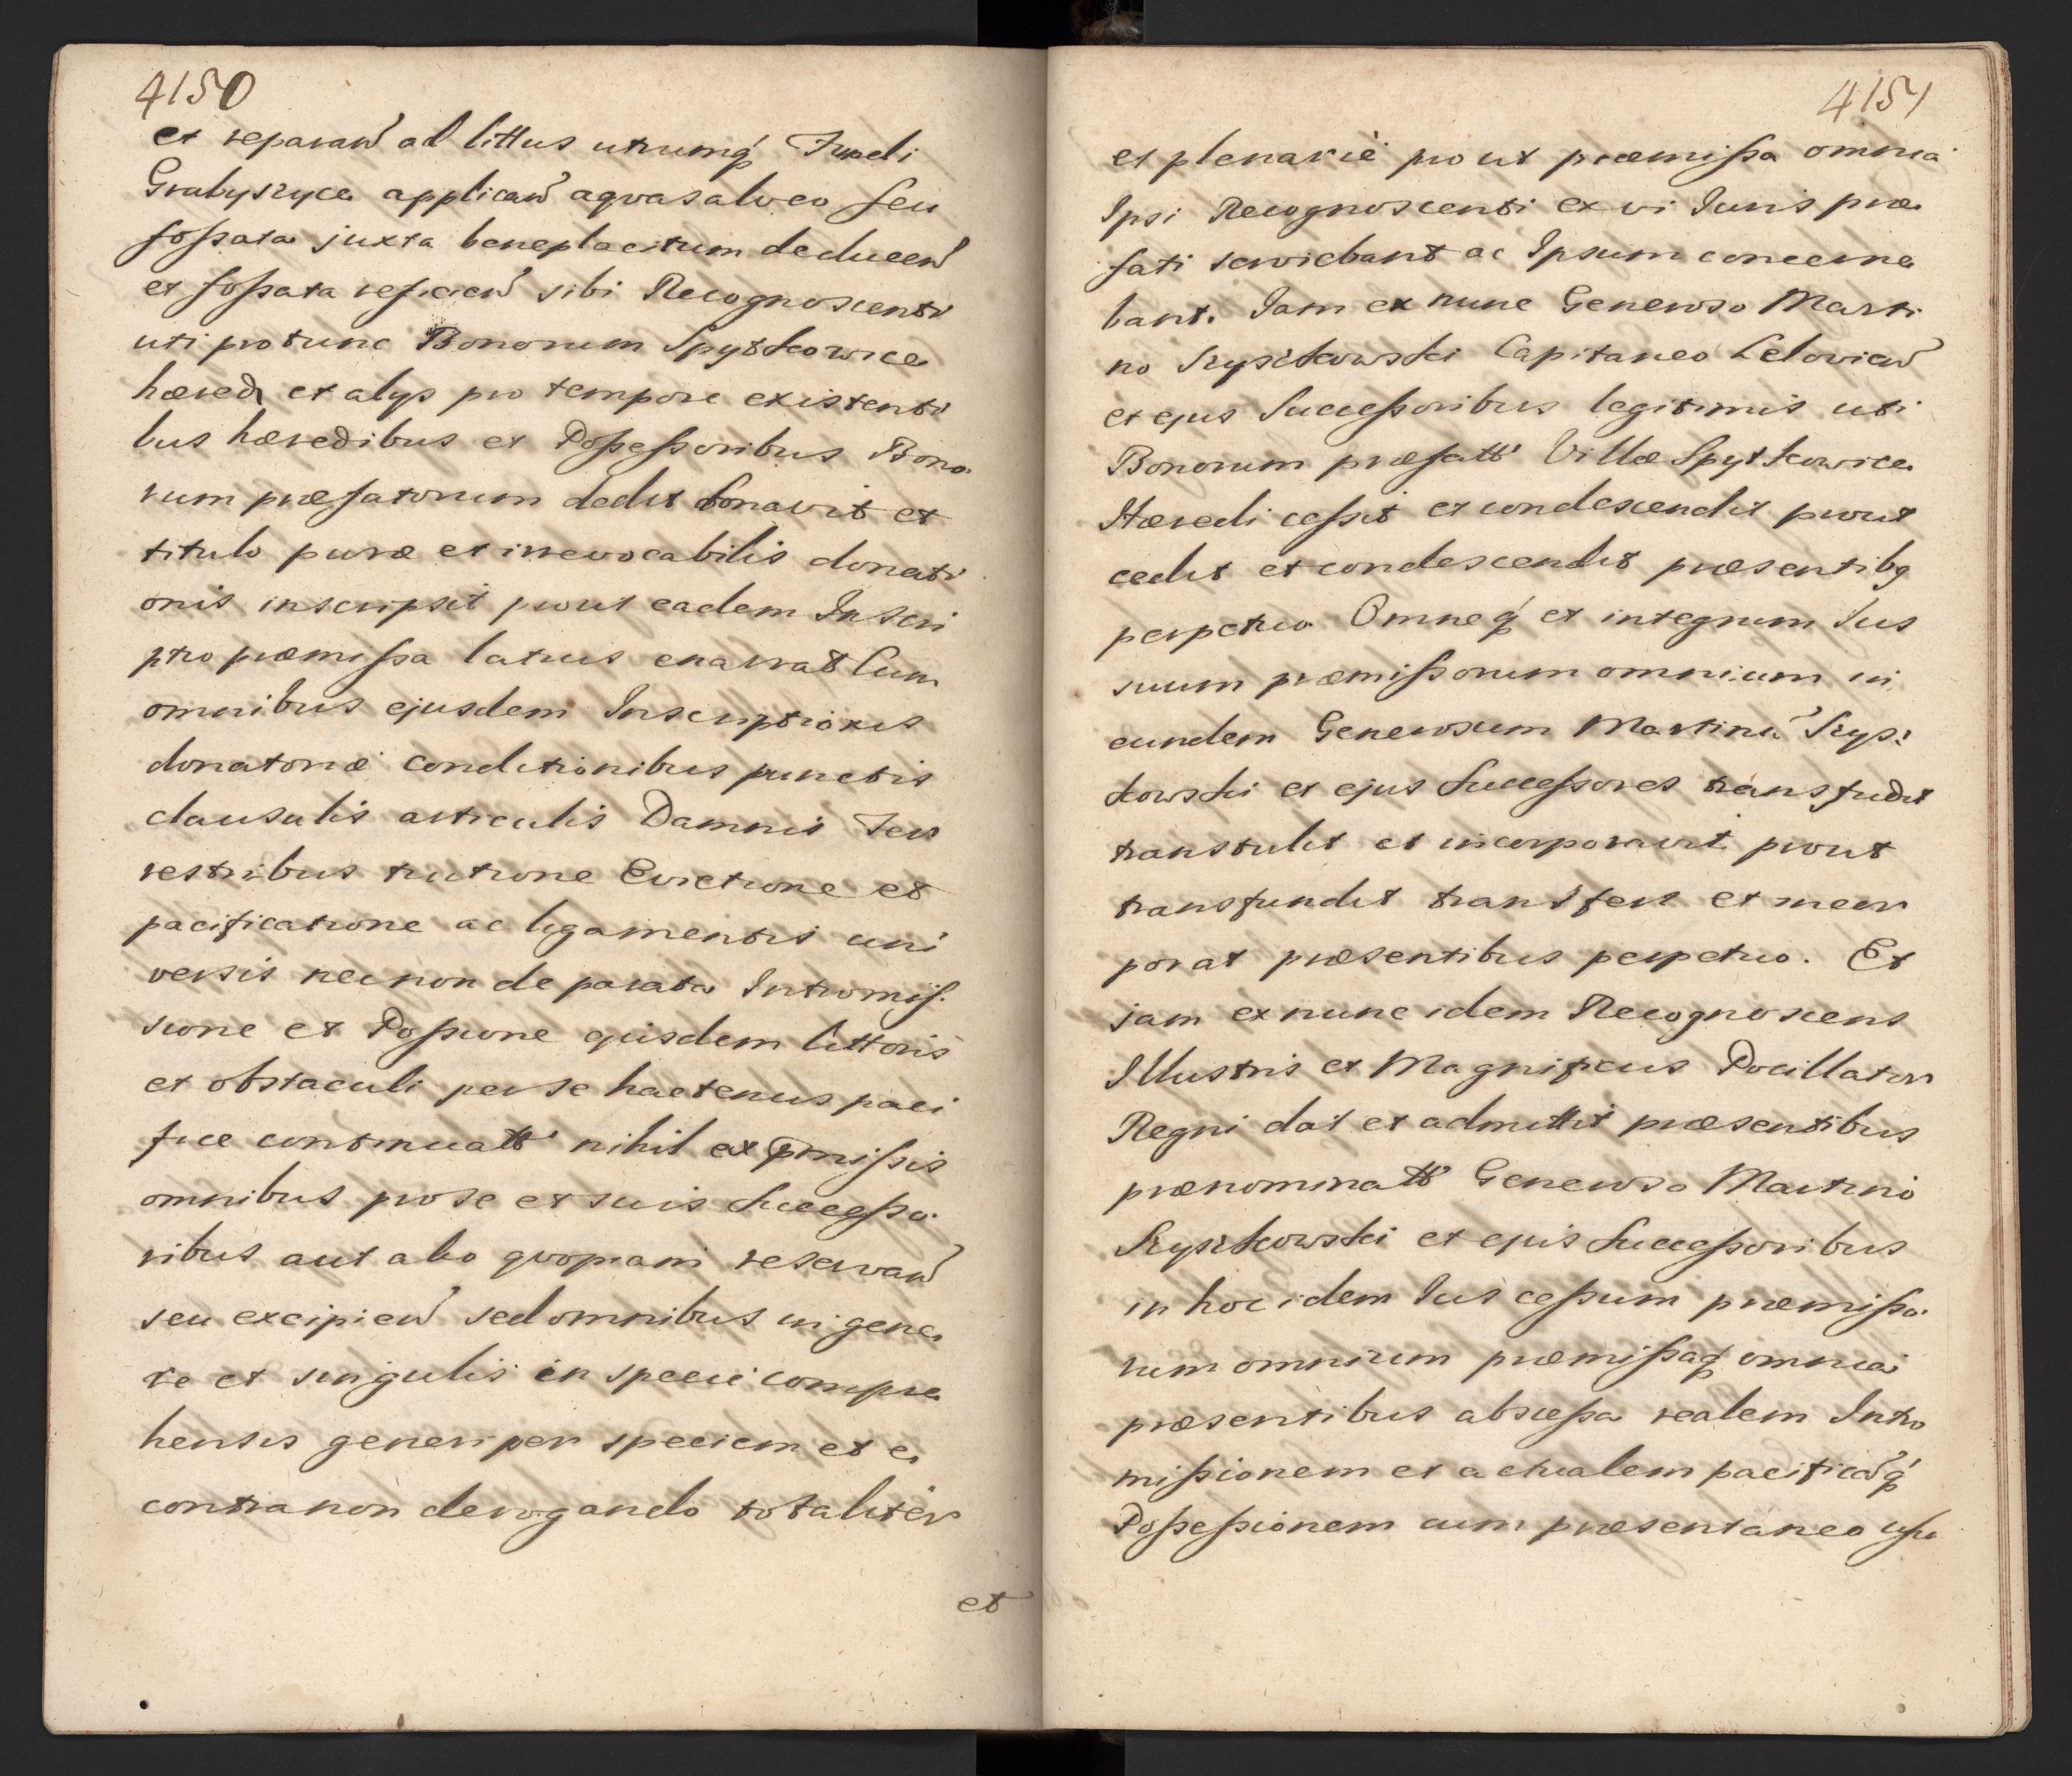 4150
et reparan̄ ad littus utrumq́ Fundi
Grabyszyce applican̄ aqvas alveo seu
foſsata juxta beneplacitum deducen̄
et foſsata reficien̄ sibi Recognoscenti
uti pro tunc Bonorum Spytkowice
hæredi et alys pro tempore existenti
bus hæredibus et Poſseſsoribus Bono
rum præfatorum dedit donavit et
titulo puræ et irrevocabilis donati
onis inscripsit prout eadem Inscri
ptio præmiſsa latius enarrat Cum
omnibus ejusdem Inscriptionis
donatoriæ conditionibus punctis
clausulis articulis Damnis Ter
restribus tuitione Evictione et
pacificatione ac ligamentis uni
versis nec non de parata Intromiſ
sione et Poſsione ejusdem littoris
et obstaculi per se hactenus paci
fice continuatt' nihil ex p̄miſsis
omnibus pro se et suis Succeſso
ribus aut alio qvopiam reservan̄
seu excipien̄ sed omnibus in gene
re et singulis in specie compre
hensis generi per speciem et e
contra non derogando totaliter
et
4151
et plenariè prout præmiſsa omnia
Ipsi Recognoscenti ex vi Iuris præ
fati serviebant ac Ipsum concerne
bant. Iam ex nunc Generoso Marti
no Szyszkowski Capitaneo Lelovien̄
et ejus Succeſsoribus legitimis uti
Bonorum præfatt' Villæ Spytkowice
Hæredi ceſsit et condescendit prout
cedit et condescendit præsentibq
perpetuo Omneq́ et integrum Ius
suum præmiſsorum omnium in
eundem Generosum Martinū Szysz
kowski et ejus Succeſsores transfudit
transtulit et incorporavit prout
transfundit transfert et incor
porat præsentibus perpetuo. Et
jam ex nunc idem Recognoscens
Illustris et Magnificus Pocillator
Regni dat et admittit præsentibus
prænominatt' Generoso Martino
Szyszkowski et ejus Succeſsoribus
in hoc idem Ius ceſsum præmiſso
rum omnium præmiſsaq́ omnia
præsentibus absceſsa realem Intro
miſsionem et actualem pacificāq́
Poſseſsionem cum præsentaneo usu